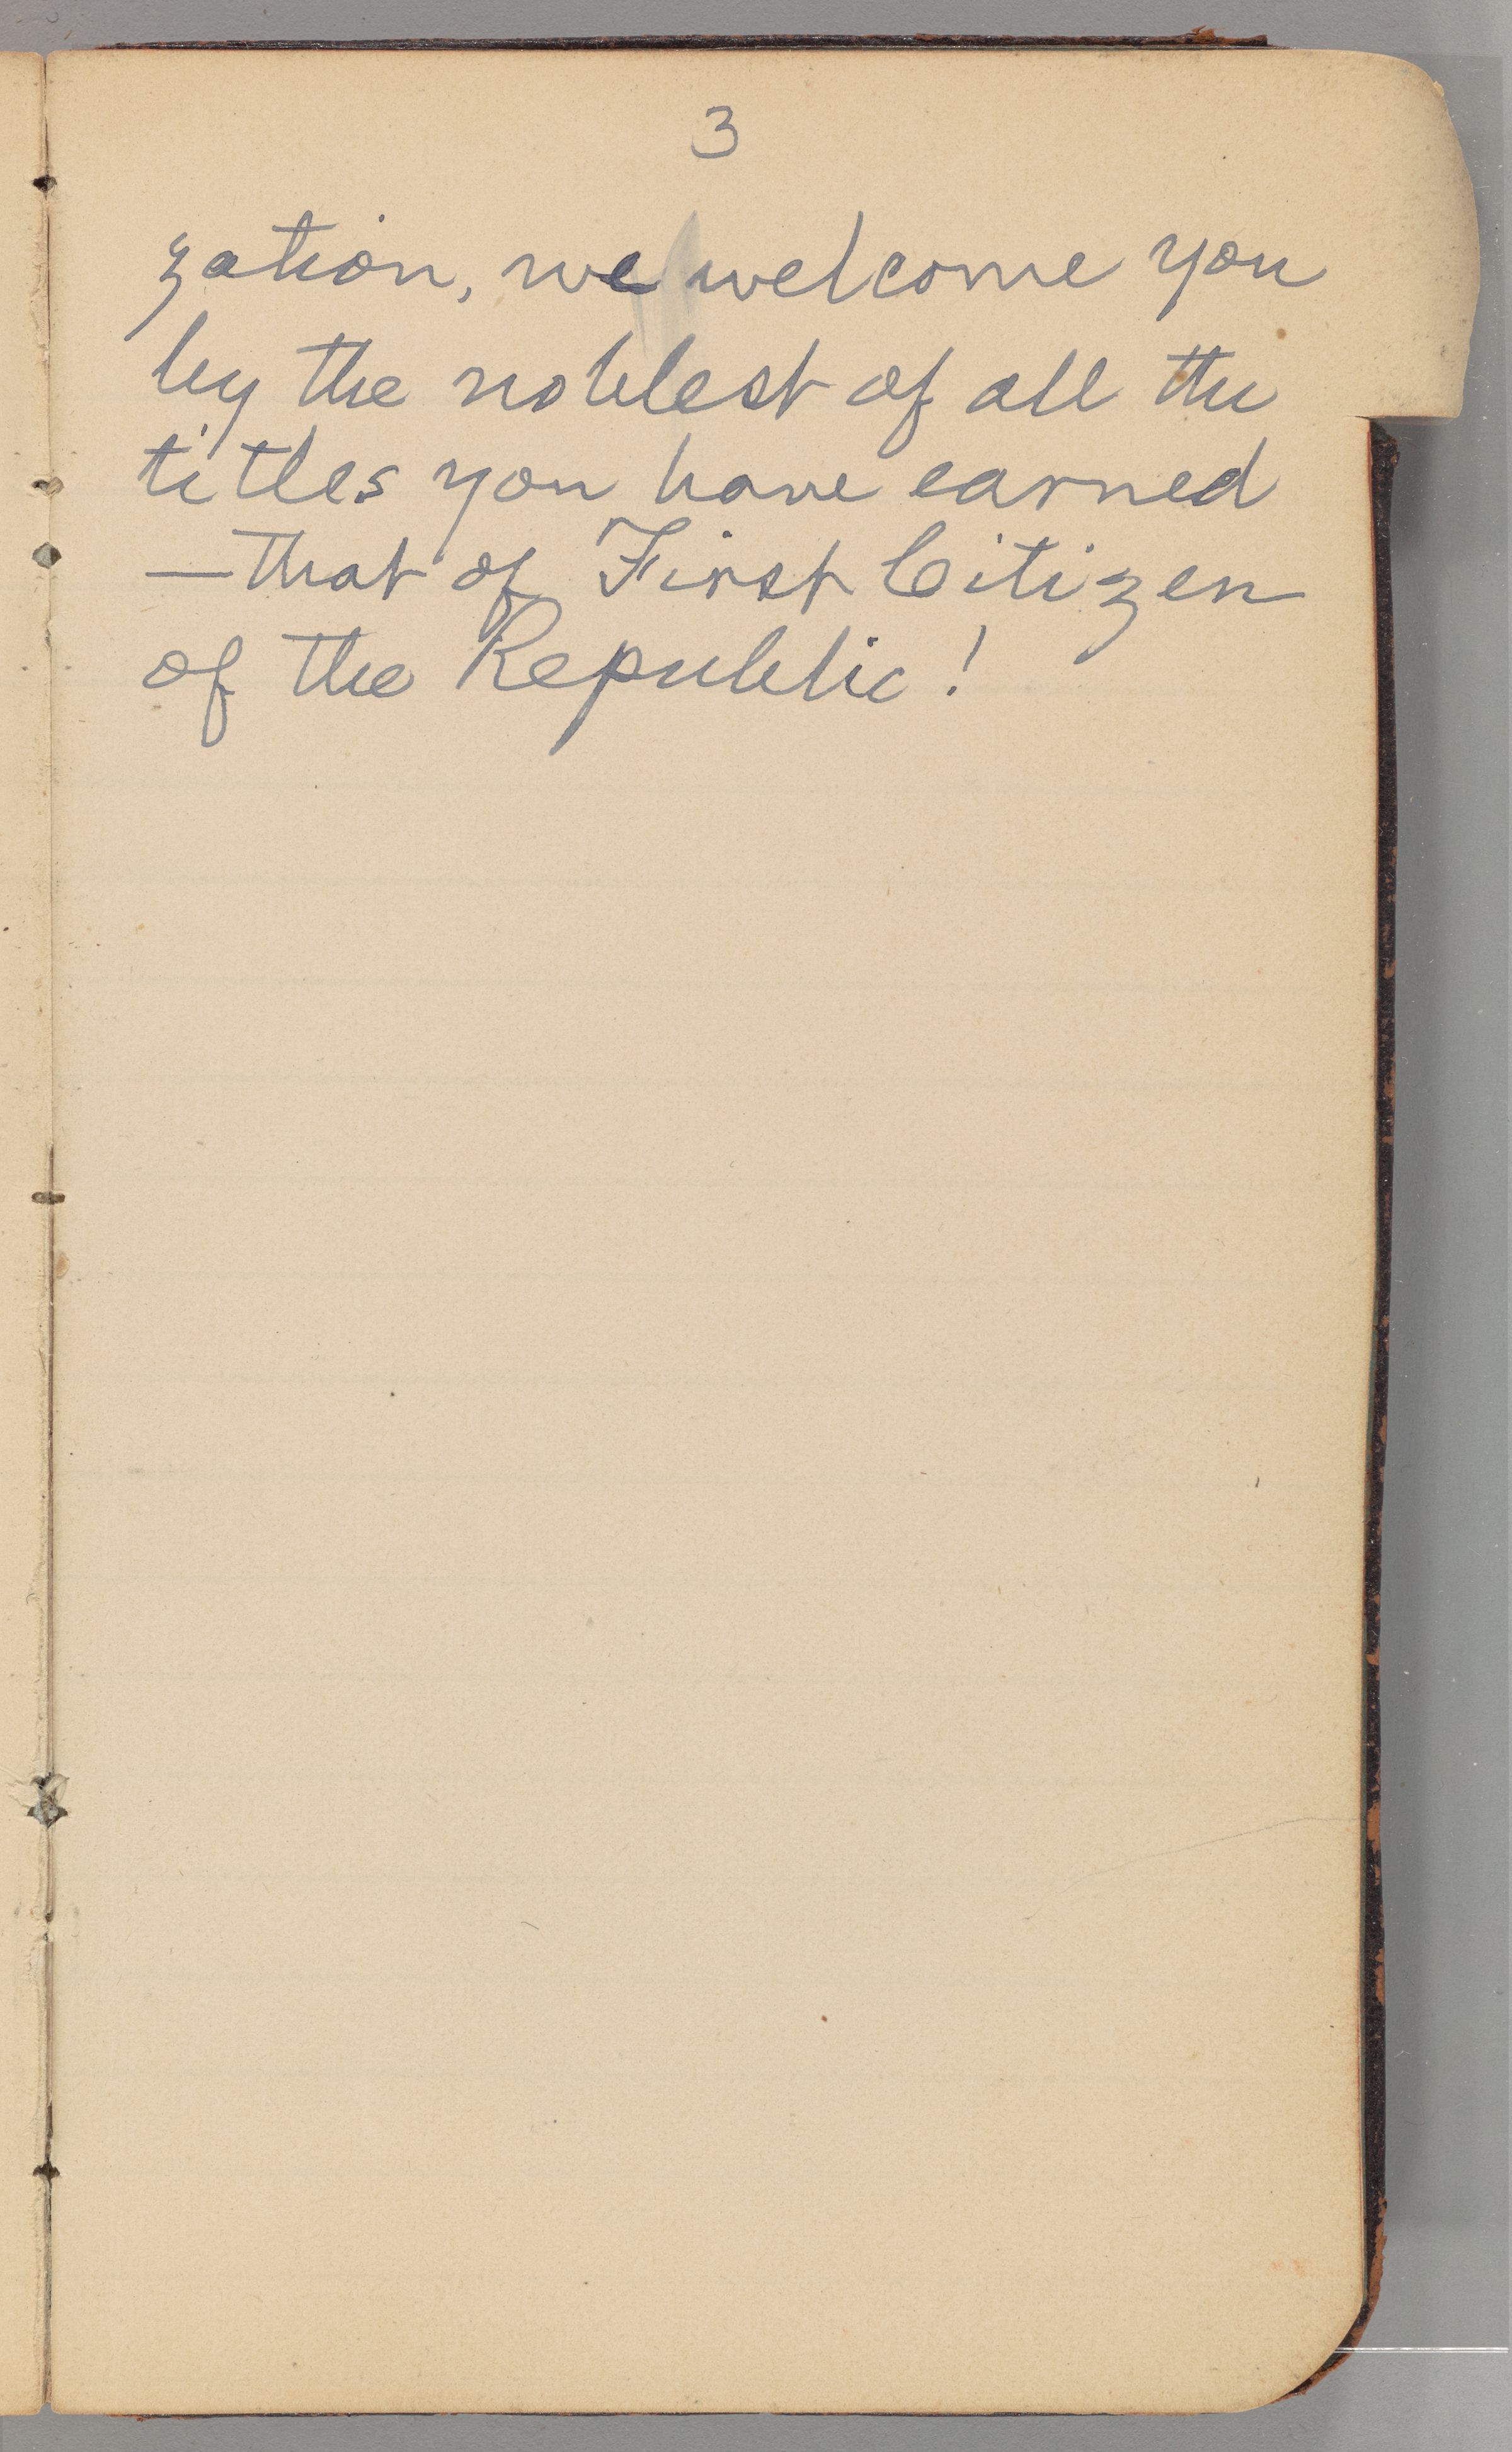 3
zation, we welcome you
by the noblest of all the
titles you have earned
—that of First Citizen
of the Republic!